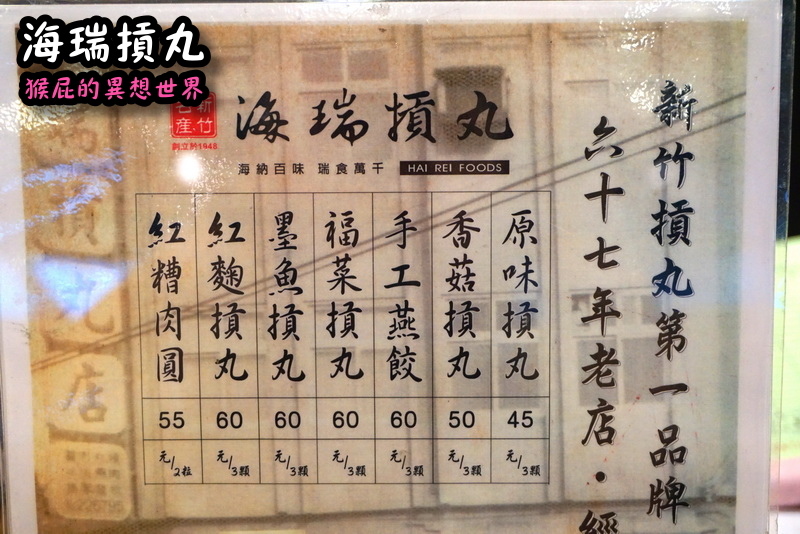 海瑞摃丸
猴屁的異想世界
新竹
名產
創立於1948
海瑞摃丸
海納百味 瑞食萬千 HAI REI FOODS
新竹摃丸第一品牌
六十七年老店·經
原味摃丸 45 元/3顆
香菇摃丸 50 元/3顆
手工燕餃 60 元/3顆
福菜摃丸 60 元/3顆
墨魚摃丸 60 元/3顆
紅麴摃丸 60 元/3顆
紅糟肉圓 55 元/2粒
摃丸店